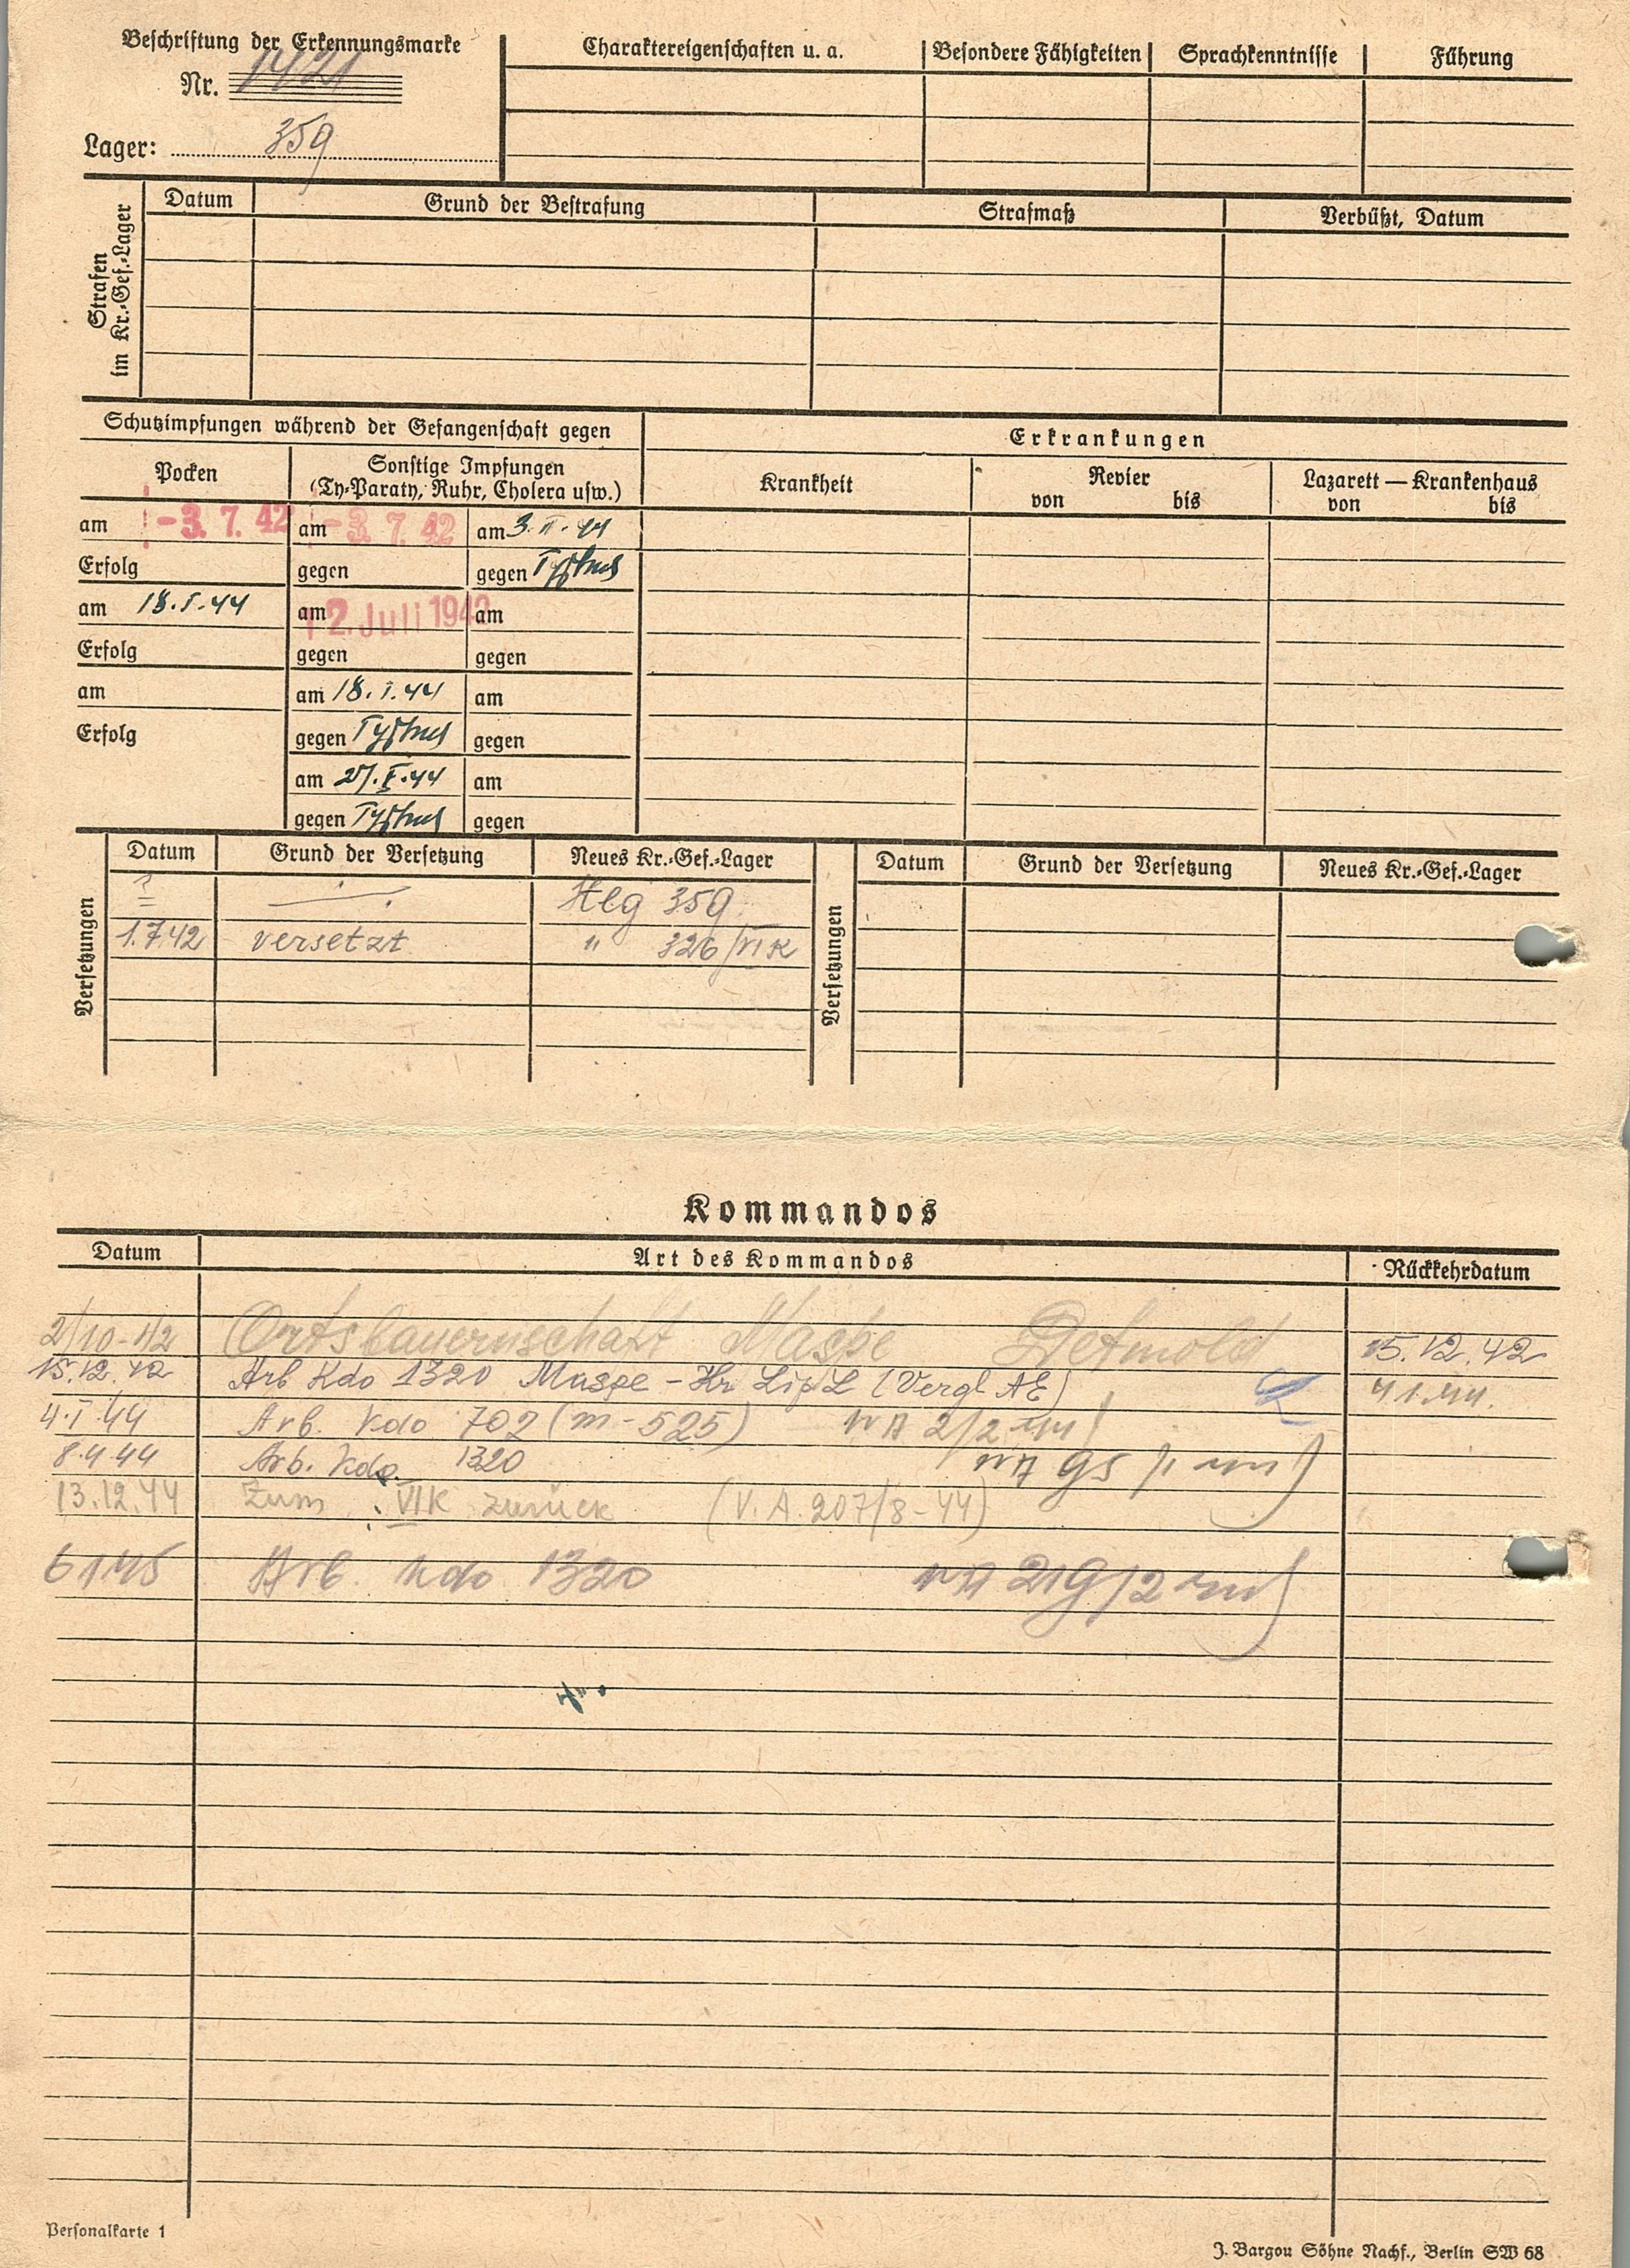 Beschriftung der Erkennungsmarke
Nr. 1421
Lager: 359
Charaktereigenschaften u. a. Besondere Fähigkeiten Sprachkenntnisse Führung
Strafen im Kr.-Gef.-Lager
Datum Grund der Bestrafung Strafmaß Verbüßt, Datum
Schutzimpfungen während der Gefangenschaft gegen
Erkrankungen
Pocken
Sonstige Impfungen
(Ty-Paraty, Ruhr, Cholera usw.)
Krankheit
Revier
von bis
Lazarett — Krankenhaus
von bis
am -3. 7. 42 am -3. 7. 42 am 3. II. 44
Erfolg gegen gegen Typhus
am 18. I. 44 am 12. Juli 1942 am
Erfolg gegen gegen
am am 18. I. 44 am
Erfolg gegen Typhus gegen
am 27. I. 44 am
gegen Typhus gegen
Versetzungen
Datum Grund der Versetzung Neues Kr.-Gef.-Lager
? — 359
1.7.42 versetzt " 326/VI K
Versetzungen
Datum Grund der Versetzung Neues Kr.-Gef.-Lager
Kommandos
Datum Art des Kommandos Rückkehrdatum
2/10-42 Ortsbauernschaft Maspe Detmold 15.12.42
15.12.42 Arb Kdo 1320 Maspe - Kr. (Vergl AE) 4 1.44.
4.I.44 Arb. Kdo 702 (m-525) 2/2
8.4.44 Arb. Kdo. 1320
13.12.44 Zum VI K zurück (V.A. 207/8-44)
6 1 45 Arb. Kdo 1320 219/2
Personalkarte 1
J. Bargou Söhne Nachf., Berlin SW 68